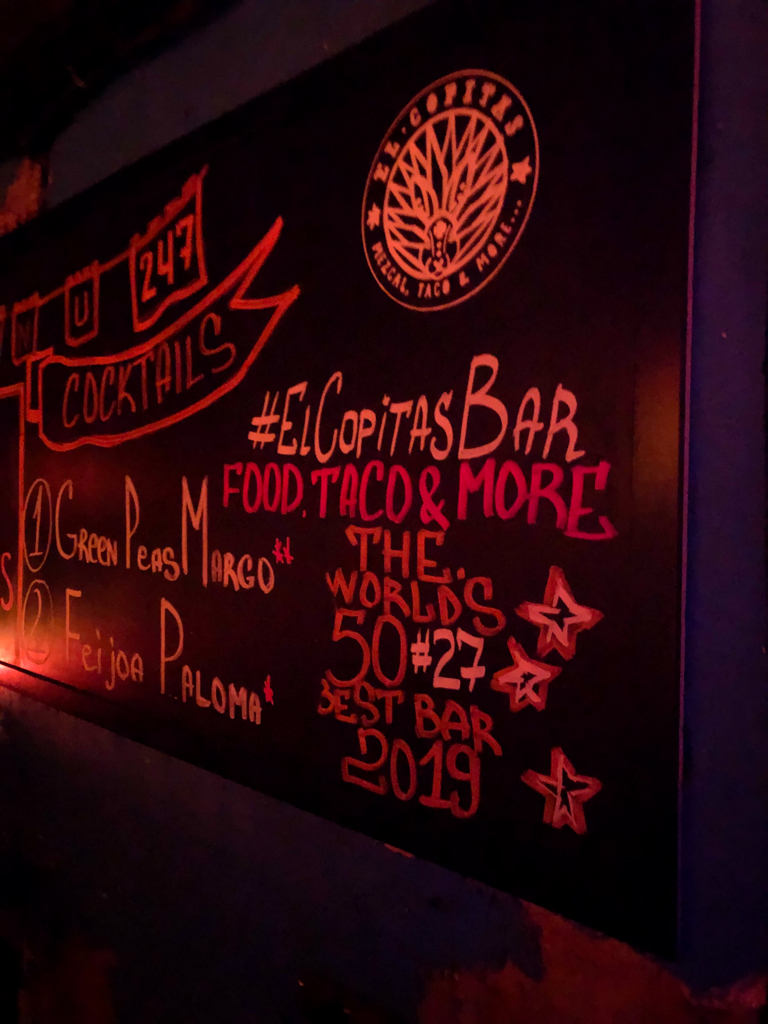 EL·COPITAS
MEZCAL, TACO & MORE...
NU 247
COCKTAILS
#ElCopitasBar
FOOD, TACO & MORE
1 Green Peas Margo**
2 Feijoa Paloma*
THE
WORLD'S
50 #27
BEST BAR
2019